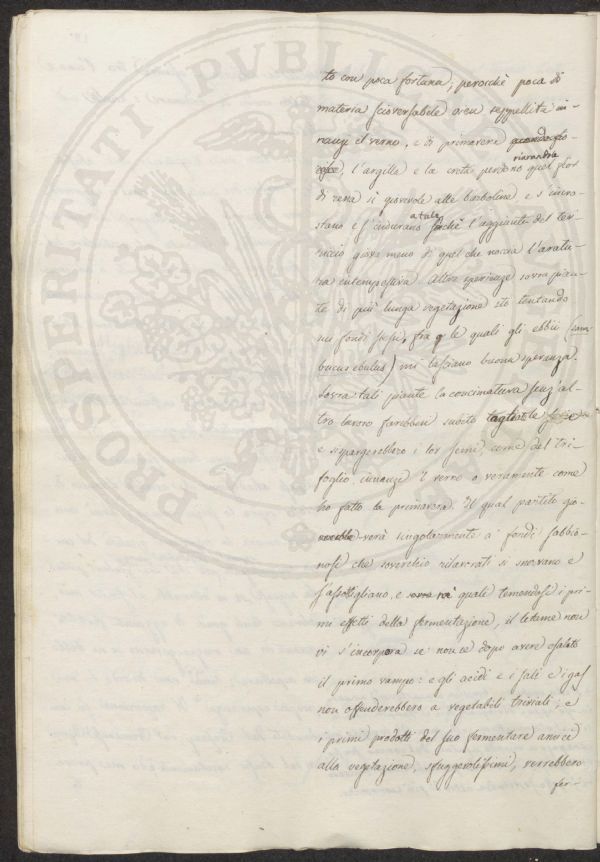 PROSPERITATI PVBLICAE
to con poca fortuna; perocchè poca di
materia scioversabile area seppellita in-
nanzi el verno, e di primavera
rivangandosi, l'argilla e la creta perdono quel fior
di rena sì giovevole alle barboline e s'incro-
stano e s'indurano a tale che l'aggiunta del ter-
riccio giova meno di quel che noccia l'aratu-
ra intempestiva. Altre sperienze sovra pian-
te di più lunga vegetazione sto tentando
sui fondi, fra le quali gli ebbii (sam-
bucus ebulus) mi lasciano buona speranza.
Sovra tali piante la concimatura senz'al-
tro lavoro farebbesi subito tagliate le
e spargerebbero i lor semi, come del tri-
foglio, innanzi 'l verno o veramente come
ho fatto la primavera. Il qual partito gio-
verà singolarmente a' fondi sabbio-
nosi che soverchio rilavorati si snervano e
s'assottigliano, e ne' quali temendosi i pri-
mi effetti della fermentazione, il letame non
vi s'incorpora se non se dopo avere esalato
il primo vampo: e gli acidi e i sali e i gas
non offenderebbero a vegetabili triviali; e
i primi prodotti del suo fermentare amici
alla vegetazione, sfuggevolissimi, verrebbero
fer-